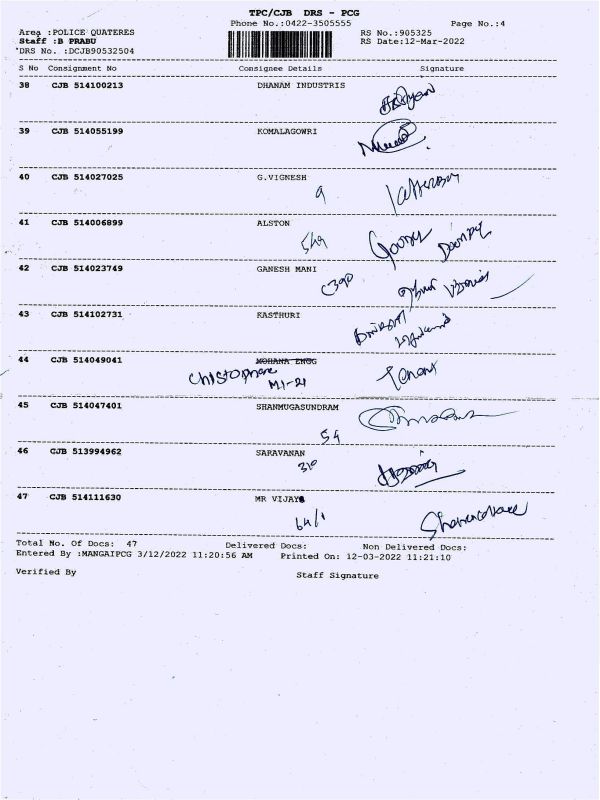 TPC/CJB DRS - PCG
Phone No.:0422-3505555 Page No.:4
Area :POLICE QUATERES RS No.:905325
Staff :B PRABU RS Date:12-Mar-2022
DRS No. :DCJB90532504
S No Consignment No Consignee Details Signature
38 CJB 514100213 DHANAM INDUSTRIS
39 CJB 514055199 KOMALAGOWRI
40 CJB 514027025 G.VIGNESH
9
41 CJB 514006899 ALSTON
42 CJB 514023749 GANESH MANI
C390
43 CJB 514102731 KASTHURI
44 CJB 514049041 MOHANA ENGG
M1-21
45 CJB 514047401 SHANMUGASUNDRAM
54
46 CJB 513994962 SARAVANAN
310
47 CJB 514111630 MR VIJAY
64/1
Total No. Of Docs: 47 Delivered Docs: Non Delivered Docs:
Entered By :MANGAIPCG 3/12/2022 11:20:56 AM Printed On: 12-03-2022 11:21:10
Verified By Staff Signature